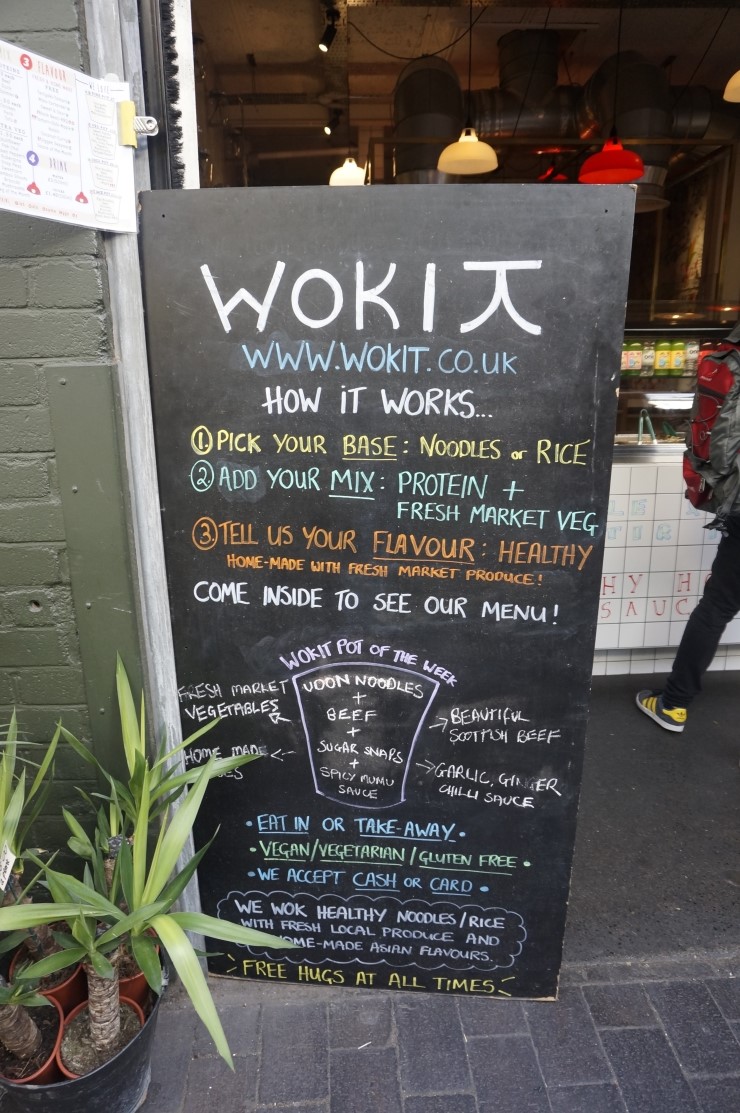 3 FLAVOUR
4 DRINK
WOKIT
WWW.WOKIT.CO.UK
HOW IT WORKS...
1. PICK YOUR BASE: NOODLES or RICE
2 ADD YOUR MIX: PROTEIN +
FRESH MARKET VEG
3 TELL US YOUR FLAVOUR: HEALTHY
HOME-MADE WITH FRESH MARKET PRODUCE!
COME INSIDE TO SEE OUR MENU!
WOKIT POT OF THE WEEK
FRESH MARKET
VEGETABLES
HOME MADE
UDON NOODLES
+
BEEF
+
SUGAR SNAPS
+
SPICY MUMU
SAUCE
BEAUTIFUL
SCOTTISH BEEF
GARLIC, GINGER
CHILLI SAUCE
• EAT IN OR TAKE-AWAY •
• VEGAN/VEGETARIAN/GLUTEN FREE •
• WE ACCEPT CASH OR CARD •
WE WOK HEALTHY NOODLES/RICE
WITH FRESH LOCAL PRODUCE AND
HOME-MADE ASIAN FLAVOURS.
FREE HUGS AT ALL TIMES